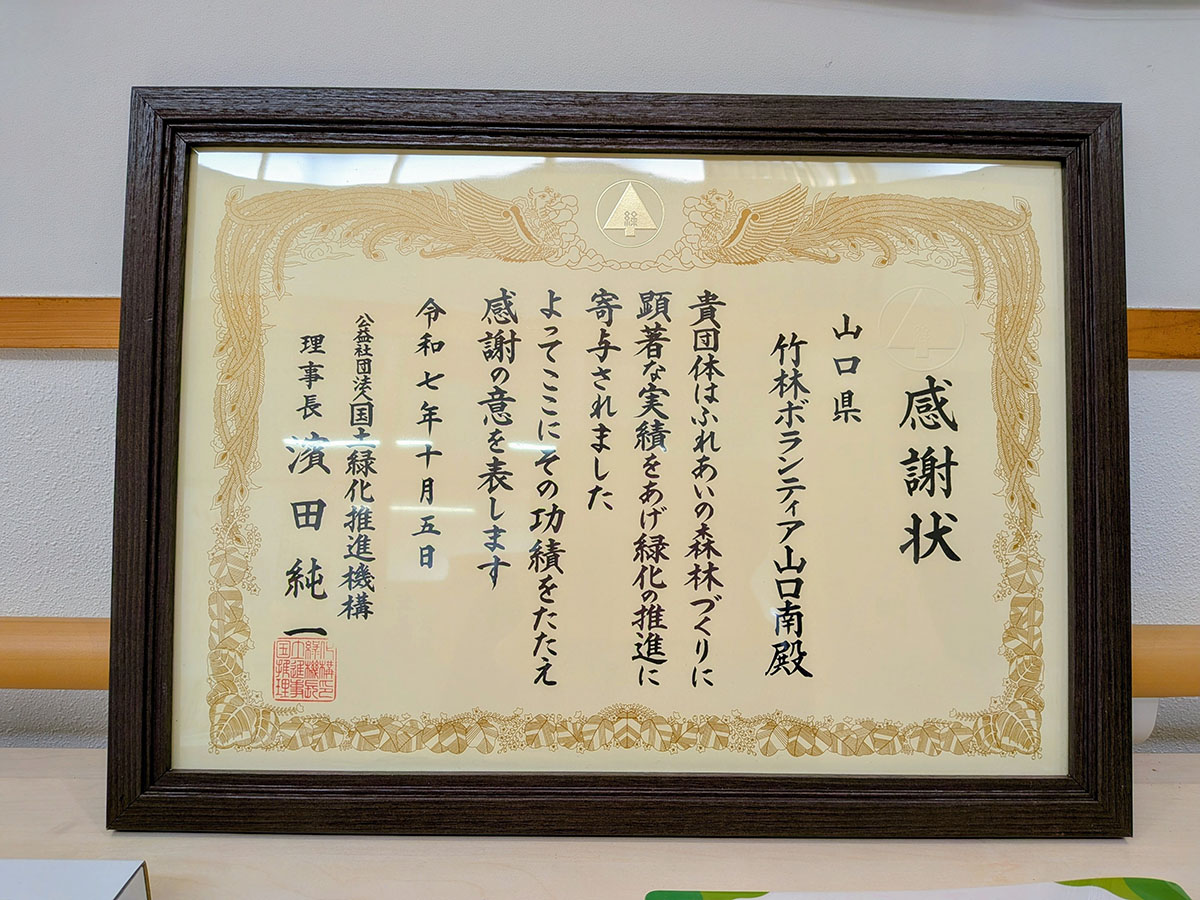 感謝状
山口県
竹林ボランティア山口南殿
貴団体はふれあいの森林づくりに
顕著な実績をあげ緑化の推進に
寄与されました
よってここにその功績をたたえ
感謝の意を表します
令和七年十月五日
公益社団法人国土緑化推進機構
理事長 濱田純一
緑